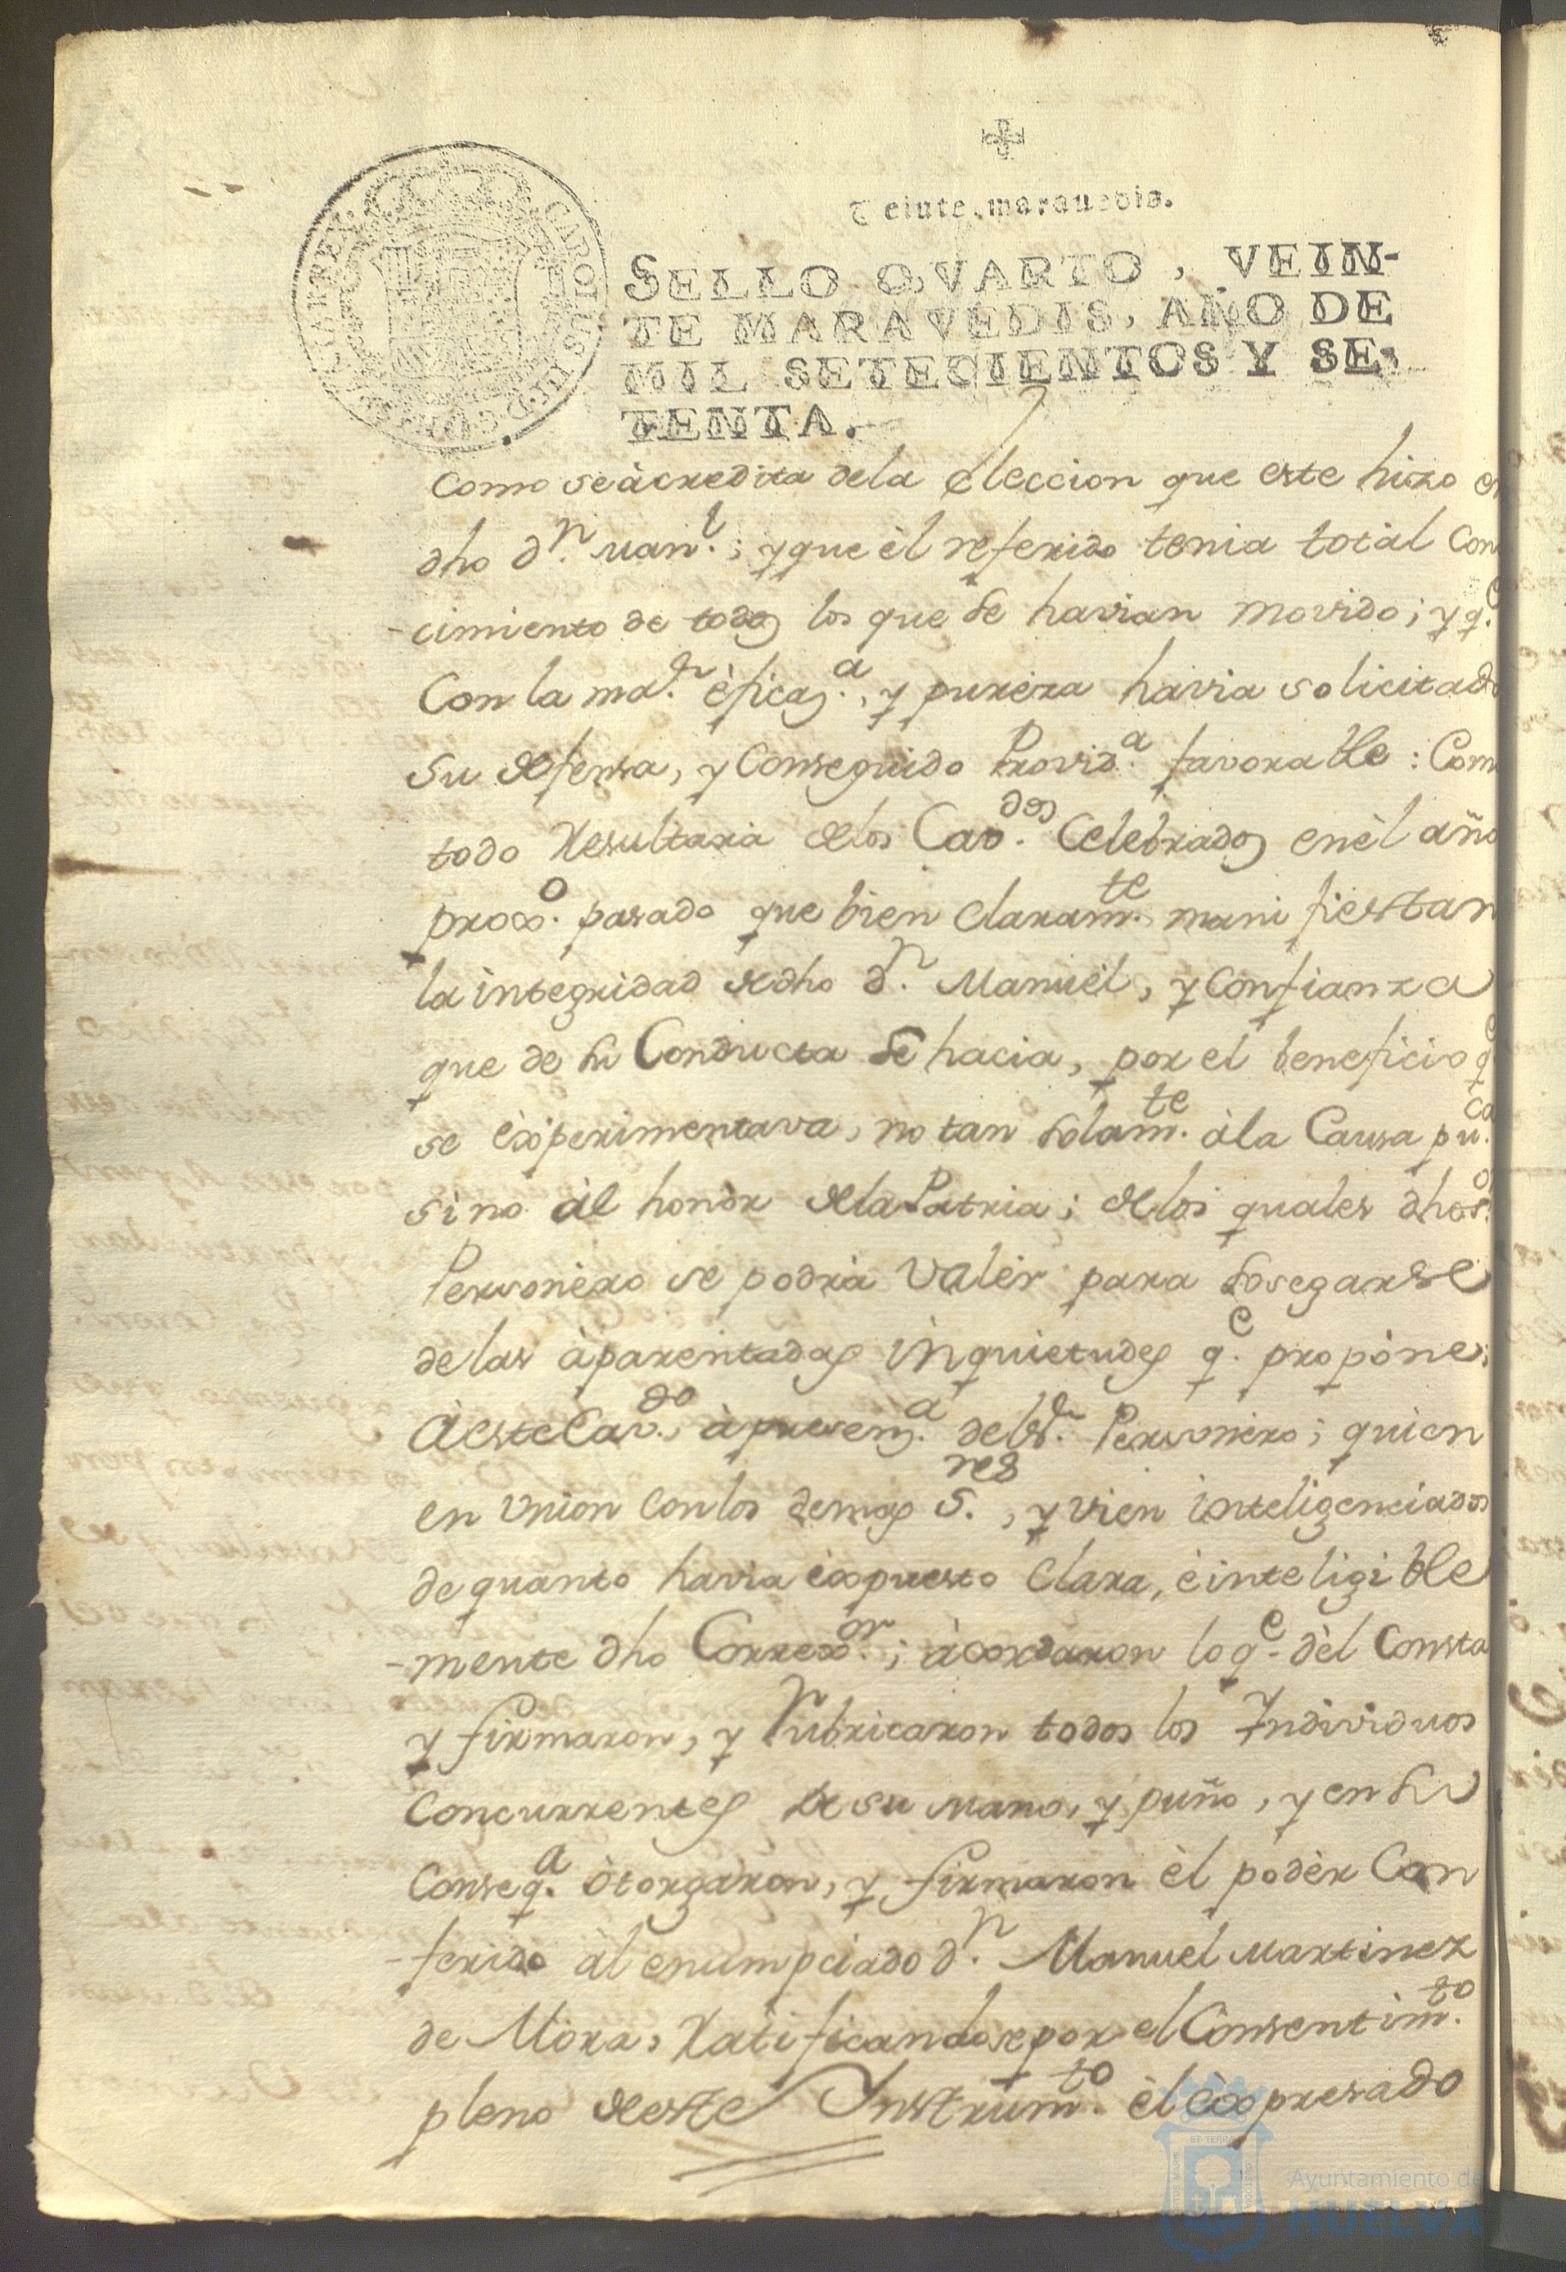 Veinte marauedis.
SELLO QVARTO, VEIN-
TE MARAVEDIS, AÑO DE
MIL SETECIENTOS Y SE-
TENTA.
CAROLUS III D G HISPANIAR REX
Como se àcredita dela Eleccion que este hizo en
dho d.n Man.l; y que èl referido tenia totàl Con
-cimiento de todos los que se havian movido; y q.e
Con la ma.r èficaz.a, y pureza havia solicitado
su defensa, y Conseguido Provid.a favorable: Como
todo Resultaria delos Cav.dos Celebrados en èl año
proxo.o pasado que bien claram.te manifiestan
la integridad dedho d.n Manuèl, y Confianza
que de su Conducta se hacia, por el beneficio q.e
se èxperimentava, no tan solam.te à la Causa pu.ca
sino àl honòr dela Patria; delos quales dho s.or
Personèro se podrà valèr para sosegarse
de las àparentadas inquietudes q.e propòne;
À este Cav.do, à presenz.a del s.r Personèro; quien
en union con los demas S.res, y vien inteligenciados
de quanto havia èxpuesto Clara, è inteligible
-mente dho Correx.or; àcordaron lo q.e dèl Consta
y firmaron, y Rubricaron todos los Individuos
Concurrentes de su mano, y puño, y en su
Conseq.a òtorgaron, y firmaron èl podèr Con
-ferido àl enumpciado d.n Manuel Martinez
de Mòra, Ratificandose por el Consentim.to
pleno deeste Instrum.to èl èxpresado
Ayuntamiento de
HUELVA